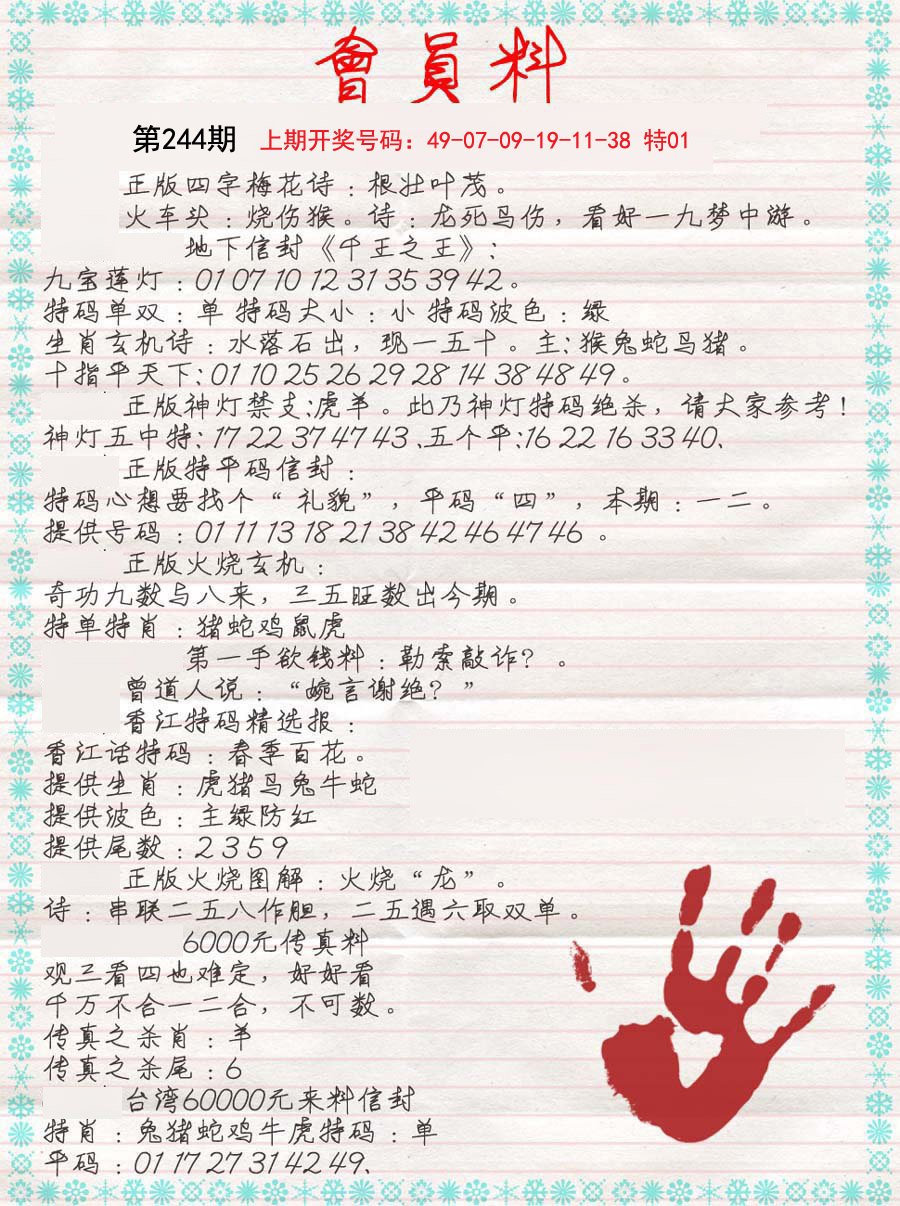 會員料
第244期 上期开奖号码：49-07-09-19-11-38 特01
正版四字梅花诗：根壮叶茂。
火车头：烧伤猴。诗：龙死鸟伤，看好一九梦中游。
地下信封《千王之王》：
九宝莲灯：01 07 10 12 31 35 39 42。
特码单双：单 特码大小：小 特码波色：绿
生肖玄机诗：水落石出，现一五十。主：猴兔蛇马猪。
十指平天下：01 10 25 26 29 28 14 38 48 49。
正版神灯禁支:虎羊。此乃神灯特码绝杀，请大家参考！
神灯五中特：17 22 37 47 43、五个平:16 22 16 33 40、
正版特平码信封：
特码心想要找个“礼貌”，平码“四”，本期：一二。
提供号码：01 11 13 18 21 38 42 46 47 46 。
正版火烧玄机：
奇功九数与八来，三五旺数出今期。
特单特肖：猪蛇鸡鼠虎
第一手欲钱料：勒索敲诈？。
曾道人说：“婉言谢绝？”
香江特码精选报：
香江话特码：春季百花。
提供生肖：虎猪马兔牛蛇
提供波色：主绿防红
提供尾数：2 3 5 9
正版火烧图解：火烧“龙”。
诗：串联二五八作胆，二五遇六取双单。
6000元传真料
观三看四也难定，好好看
千万不合一二合，不可数。
传真之杀肖：羊
传真之杀尾：6
台湾60000元来料信封
特肖：兔猪蛇鸡牛虎特码：单
平码：01 17 27 31 42 49、